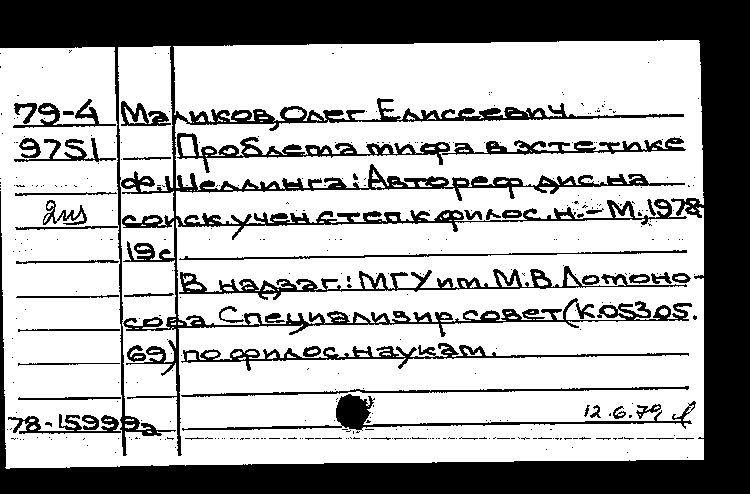 79-4 Маликов, Олег Елисеевич.
9751 Проблема мифа в эстетике
Ф. Шеллинга: Автореф. дис. на
соиск. учен. степ. к. филос. н. - М., 1978
19 с.
В надзаг.: МГУ им. М.В. Ломоно-
сова. Специализир. совет (К.053.05.
69) по филос. наукам.
78-15999а 12.6.79